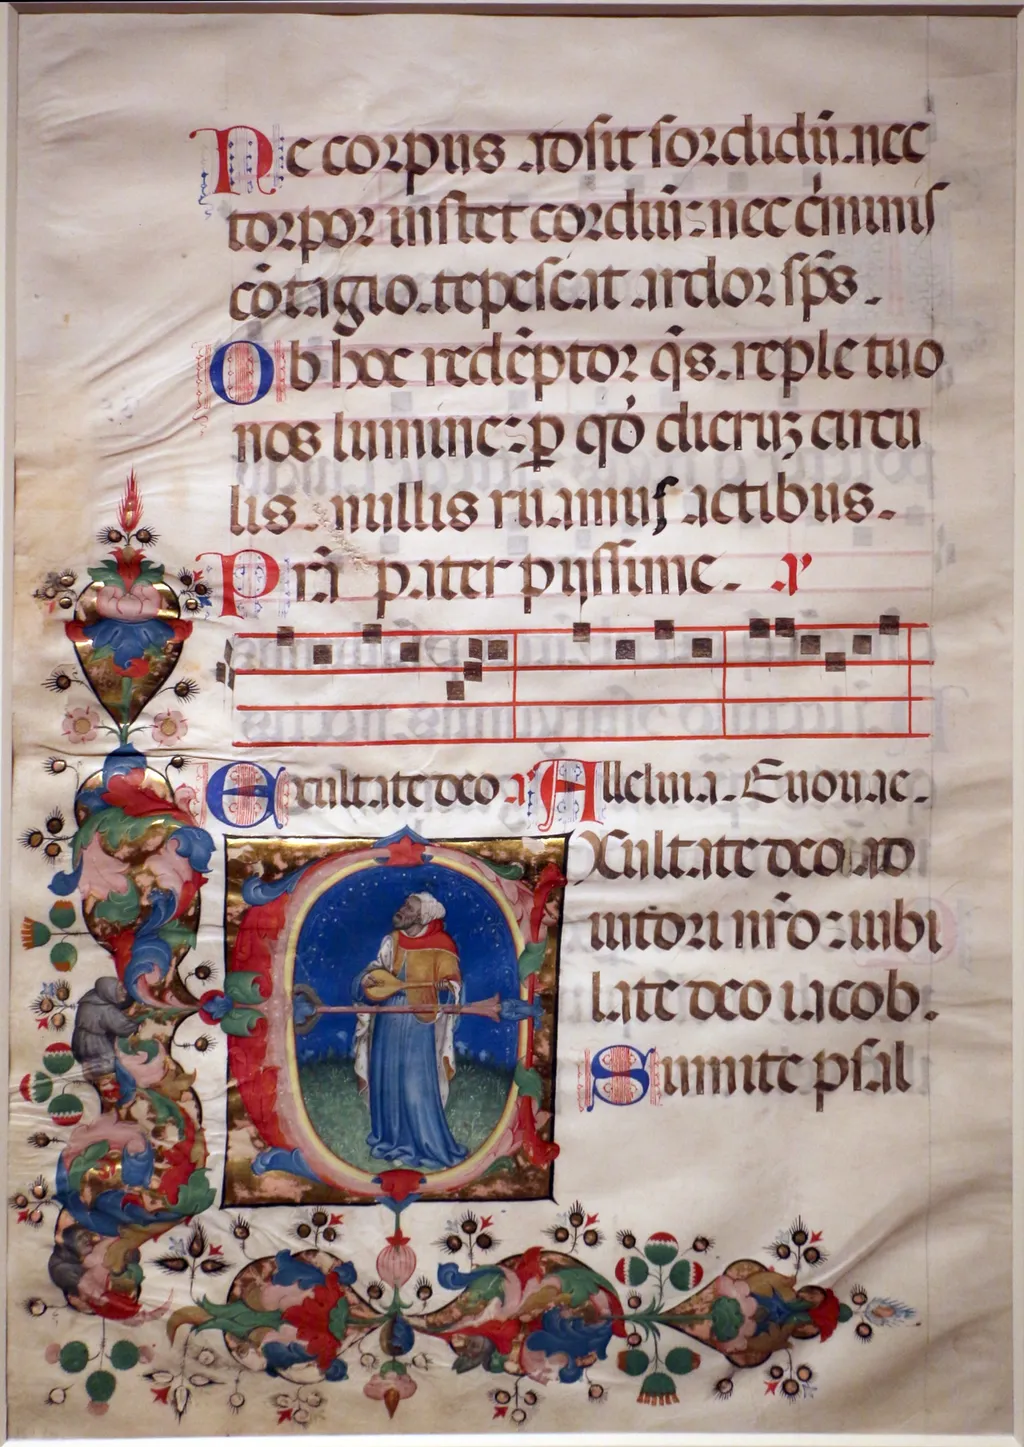 Ne corpus adsit sordidū. nec
torpor instet cordiū: nec c̓iminis
cōtagio. tepescat ardor sp̄s.
Ob hoc redēptor q̄s. reple tuo
nos lumine: ꝑ qđ dieruꝫ circu
lis. nullis ruamus actibus.
Pr̄a pater pijssime. a᷒
Exultate deo a᷒ Alleluia. Euouae.
EXultate deo ad
iutori nr̄o: iubi
late deo iacob.
Sumite psal